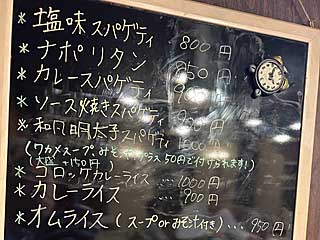 *塩味スパゲティ 800円
*ナポリタン 850円
*カレースパゲティ 900円
*ソース焼きスパゲティ
*和風明太子スパゲティ 1000円
(ワカメスープ、みそ汁プラス50円で付けられます!)
(大盛 +150円)
*コロッケカレーライス ... 1000円
*カレーライス ... 900円
*オムライス(スープorみそ汁付き)... 950円